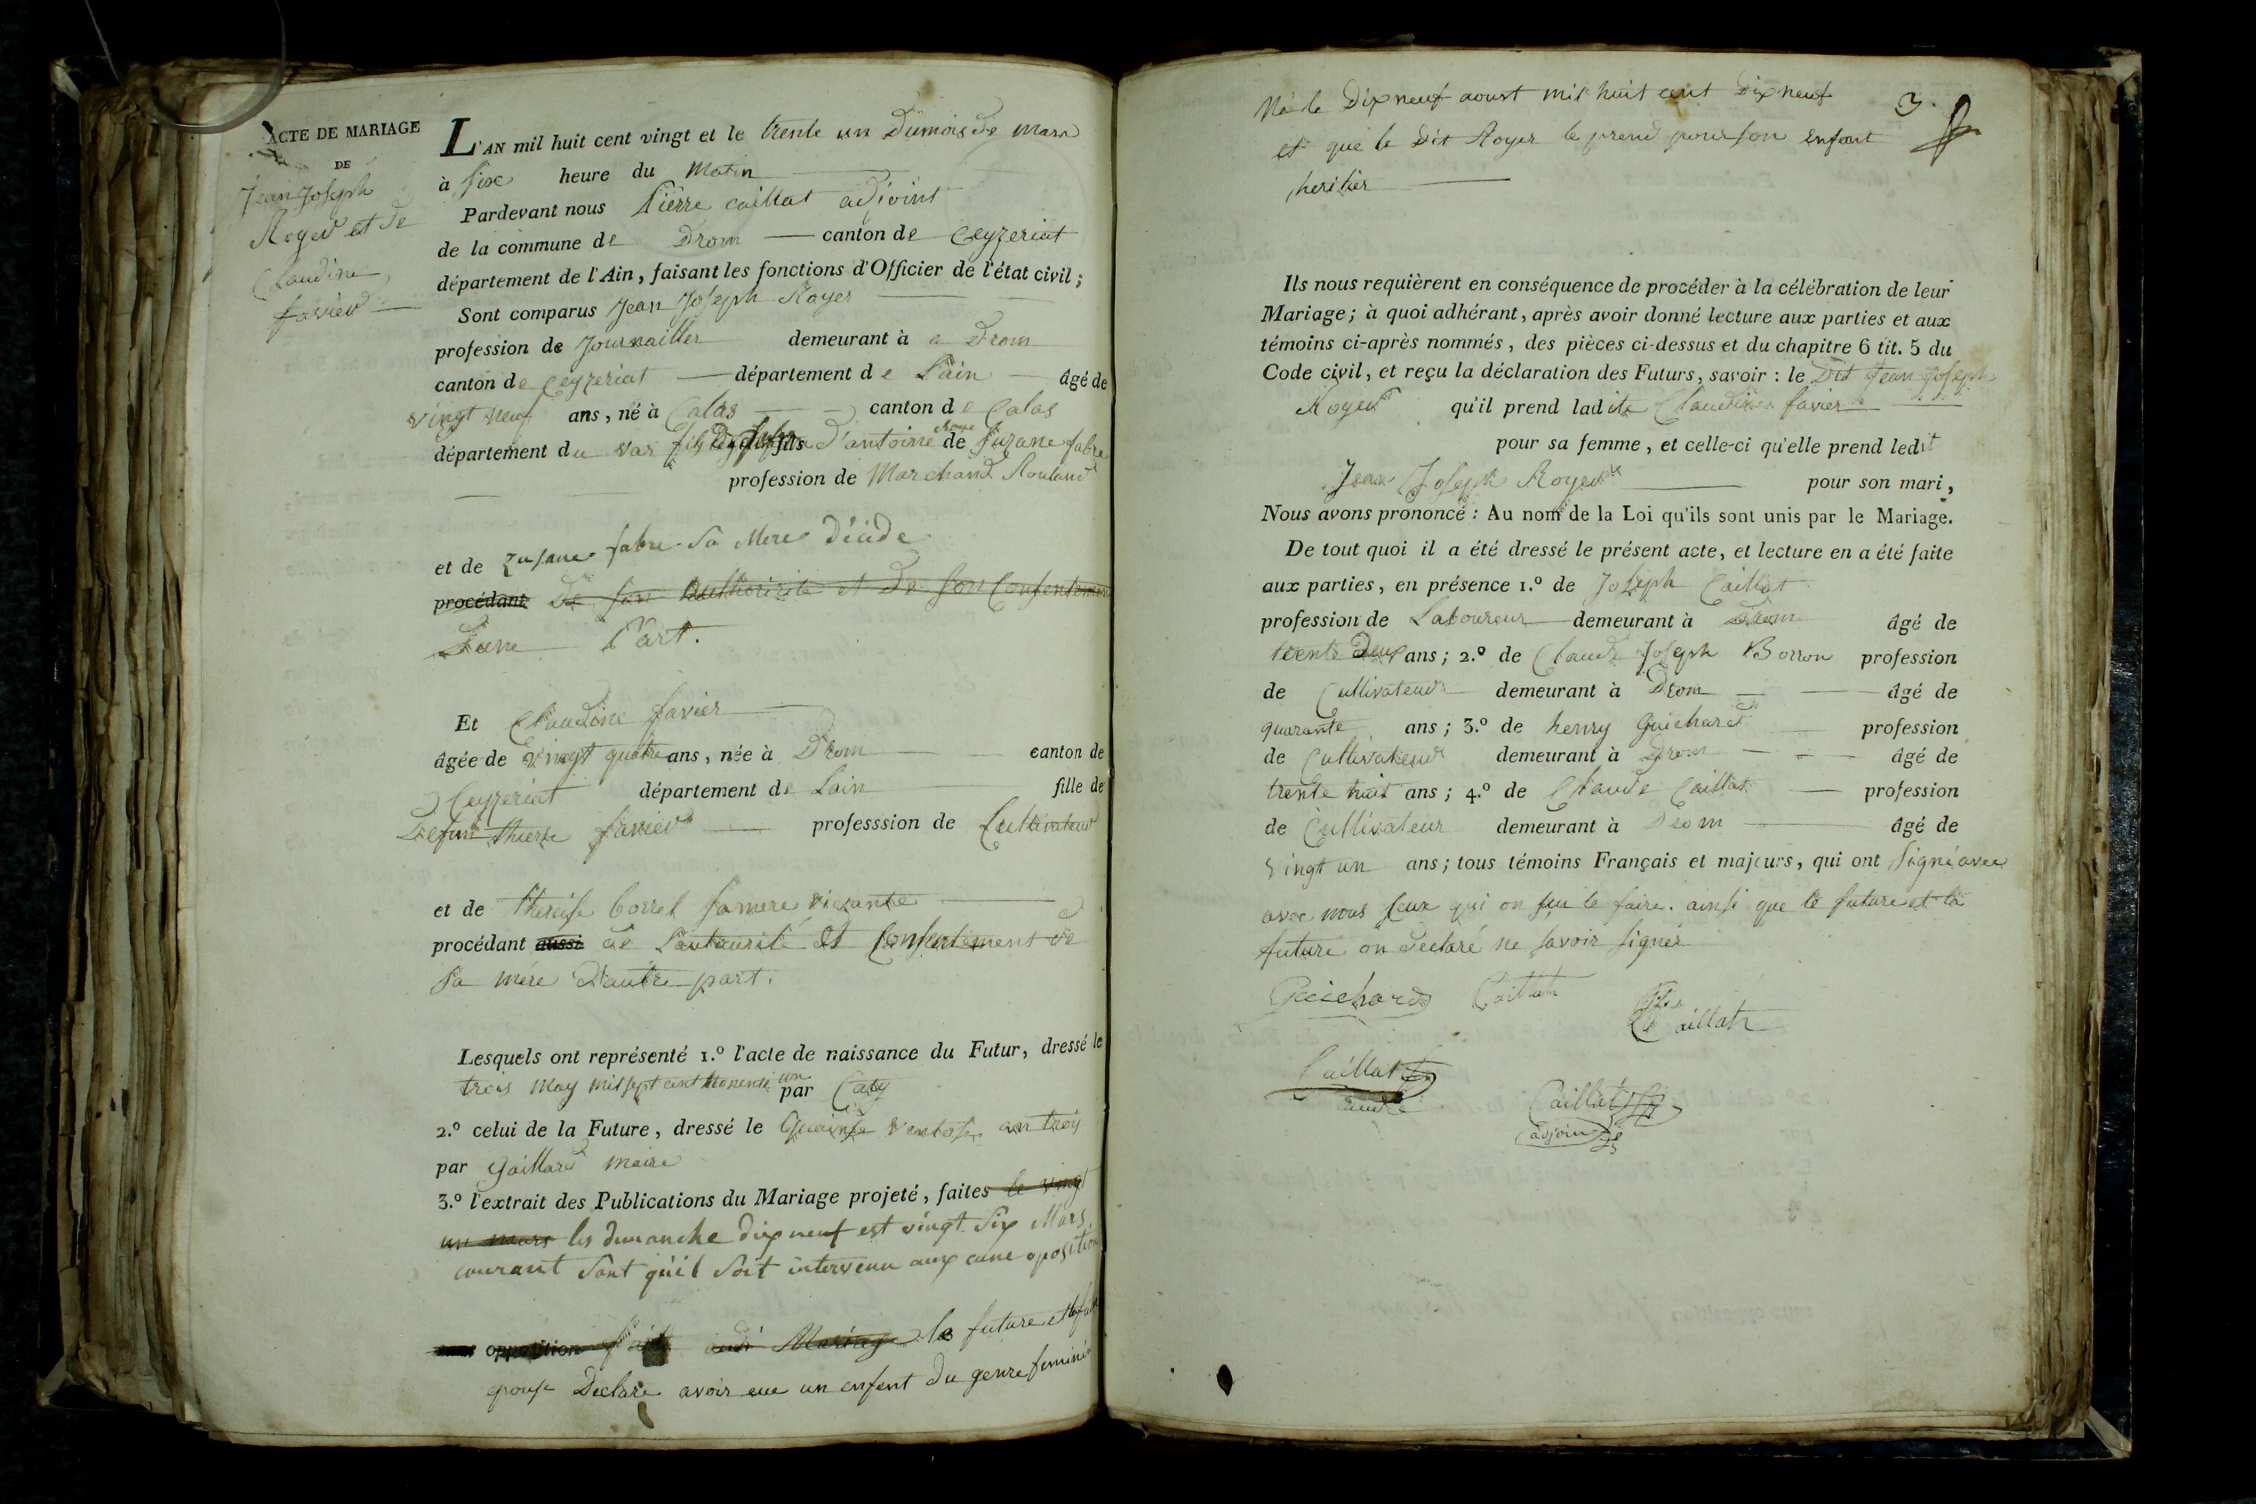 ACTE DE MARIAGE
DE
Jean Joseph
Royer et de
Claudine
favier
L'AN mil huit cent vingt et le trente un Dumois de mars
à six heure du matin
Pardevant nous Pierre caillat adjoint
de la commune de Drom canton de Ceyzeriat
département de l'Ain, faisant les fonctions d'Officier de l'état civil;
Sont comparus Jean Joseph Royer
profession de Journallier demeurant à a Drom
canton de Ceyzeriat département de Lain âgé de
vingt neuf ans, né à Calas canton de Calas
département du var fils d'antoine Royer de Suzane fabre
profession de Marchand Rouland
et de Zusane fabre sa Mere Déide
procédant de son authorizite et de son Consentement
Dune Part.
Et Claudine favier
âgée de vingt quatre ans, née à Drom canton de
Ceyzeriat département de Lain fille de
Defunt favier professsion de Cultivateur
et de Thereise Correl sa mere vicante
procédant aussi de Lautaurité et Consentement de
sa mére D'autre part.
Lesquels ont représenté 1.º l'acte de naissance du Futur, dressé le
trois may mil sept cent nonente un par
2.º celui de la Future, dressé le Quainse ventose an troy
par Gaillard maire
3.º l'extrait des Publications du Mariage projeté, faites le vingt
un mars les dimanche dix neuf est vingt Six Mars
courant Sant qu'il Soit intervenu aux cune oposition
opposition Mariage la future
epouse Declare avoir eue un enfent du genre feminin
Né le Dix neuf aoust mil huit cent Dix neuf
3.
et que le Dit Royer le prend pour son enfant
heritier
Ils nous requièrent en conséquence de procéder à la célébration de leur
Mariage; à quoi adhérant, après avoir donné lecture aux parties et aux
témoins ci-après nommés, des pièces ci-dessus et du chapitre 6 tit. 5 du
Code civil, et reçu la déclaration des Futurs, savoir: le Dit Jean Joseph
Royer qu'il prend ladite Claudine favier
pour sa femme, et celle-ci qu'elle prend ledit
Jean Joseph Royer pour son mari,
Nous avons prononcé: Au nom de la Loi qu'ils sont unis par le Mariage.
De tout quoi il a été dressé le présent acte, et lecture en a été faite
aux parties, en présence 1.º de Joseph Caillat
profession de Laboureur demeurant à Drom âgé de
trente deux ans; 2.º de Claude Joseph Borron profession
de Cultivateur demeurant à Drom âgé de
quarante ans; 3.º de henry Guichard profession
de Cultivateur demeurant à Drom âgé de
trente huit ans; 4.º de Claude Caillat profession
de Cultivateur demeurant à Drom âgé de
vingt un ans; tous témoins Français et majeurs, qui ont Signé avec
avec nous Ceux qui on seu le faire. ainsi que le future et la
future on declaré ne savoir signer
Guichard Caillat
Caillat
Caillat
Caillat
adjoint